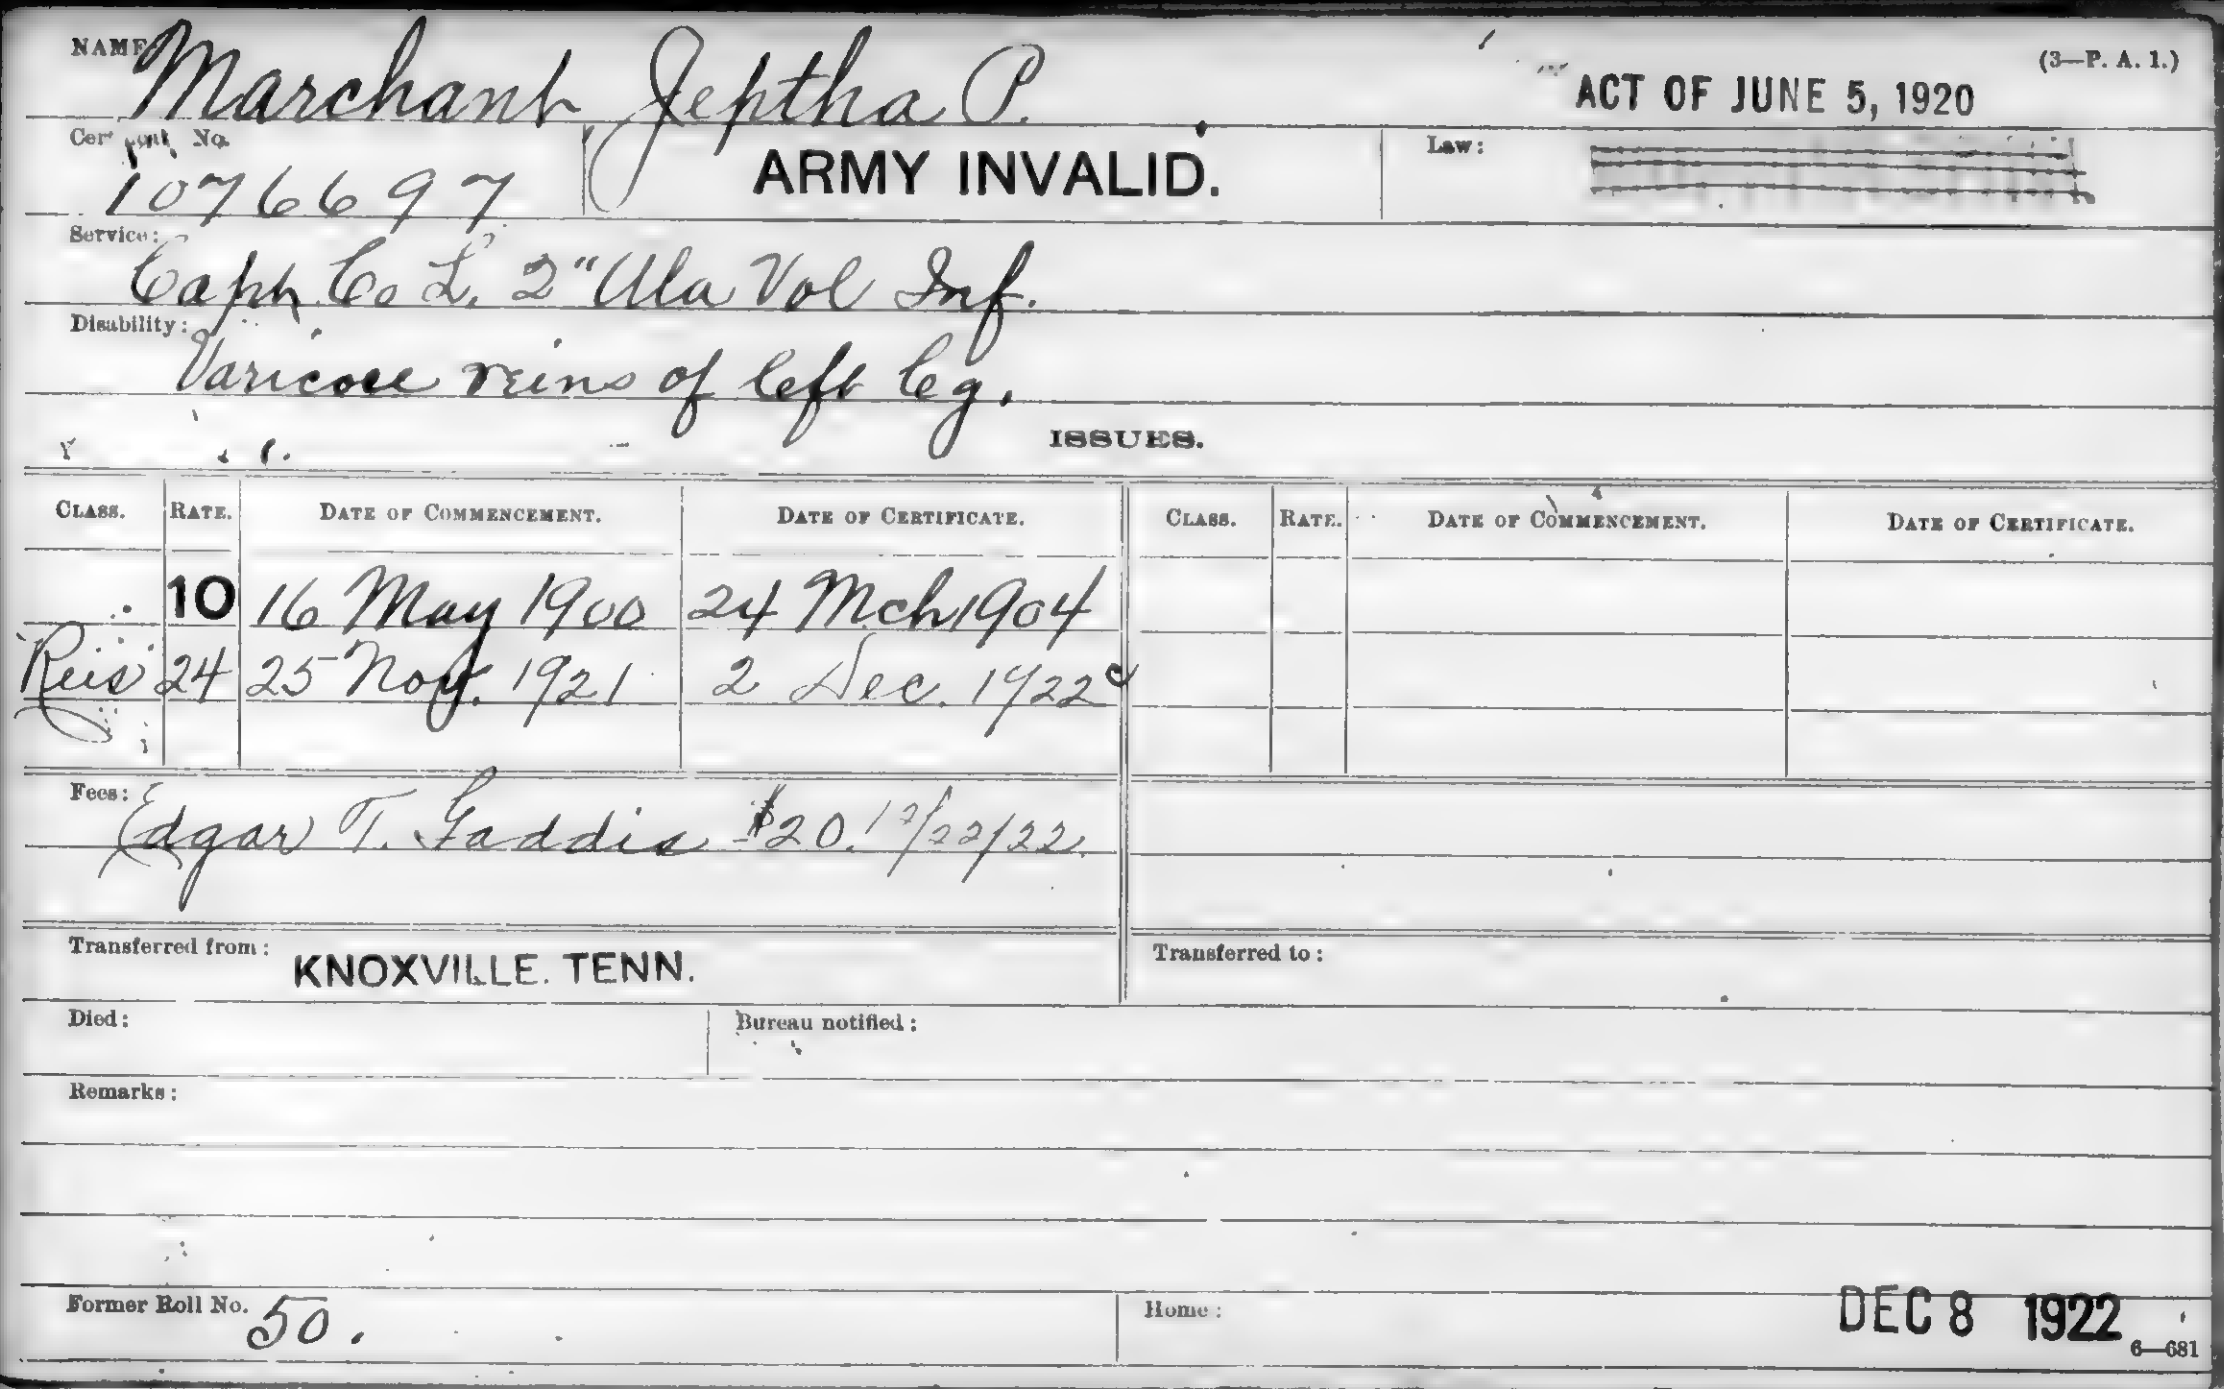 NAME Marchant Jeptha P.
(3—P. A. 1.)
ACT OF JUNE 5, 1920
No.
1076697
ARMY INVALID.
Law:
Service:
Capt. Co L. 2" Ala Vol Inf.
Disability:
Varicose veins of left leg.
ISSUES.
CLASS. RATE. DATE OF COMMENCEMENT. DATE OF CERTIFICATE. CLASS. RATE. DATE OF COMMENCEMENT. DATE OF CERTIFICATE.
10 16 May 1900 24 Mch 1904
Reis 24 25 Nov. 1921 2 Dec. 1922
Fees: Edgar T. Gaddis $20. 12/22/22.
Transferred from: KNOXVILLE. TENN.
Transferred to:
Died:
Bureau notified:
Remarks:
Former Roll No. 50.
Home:
DEC 8 1922
6—681